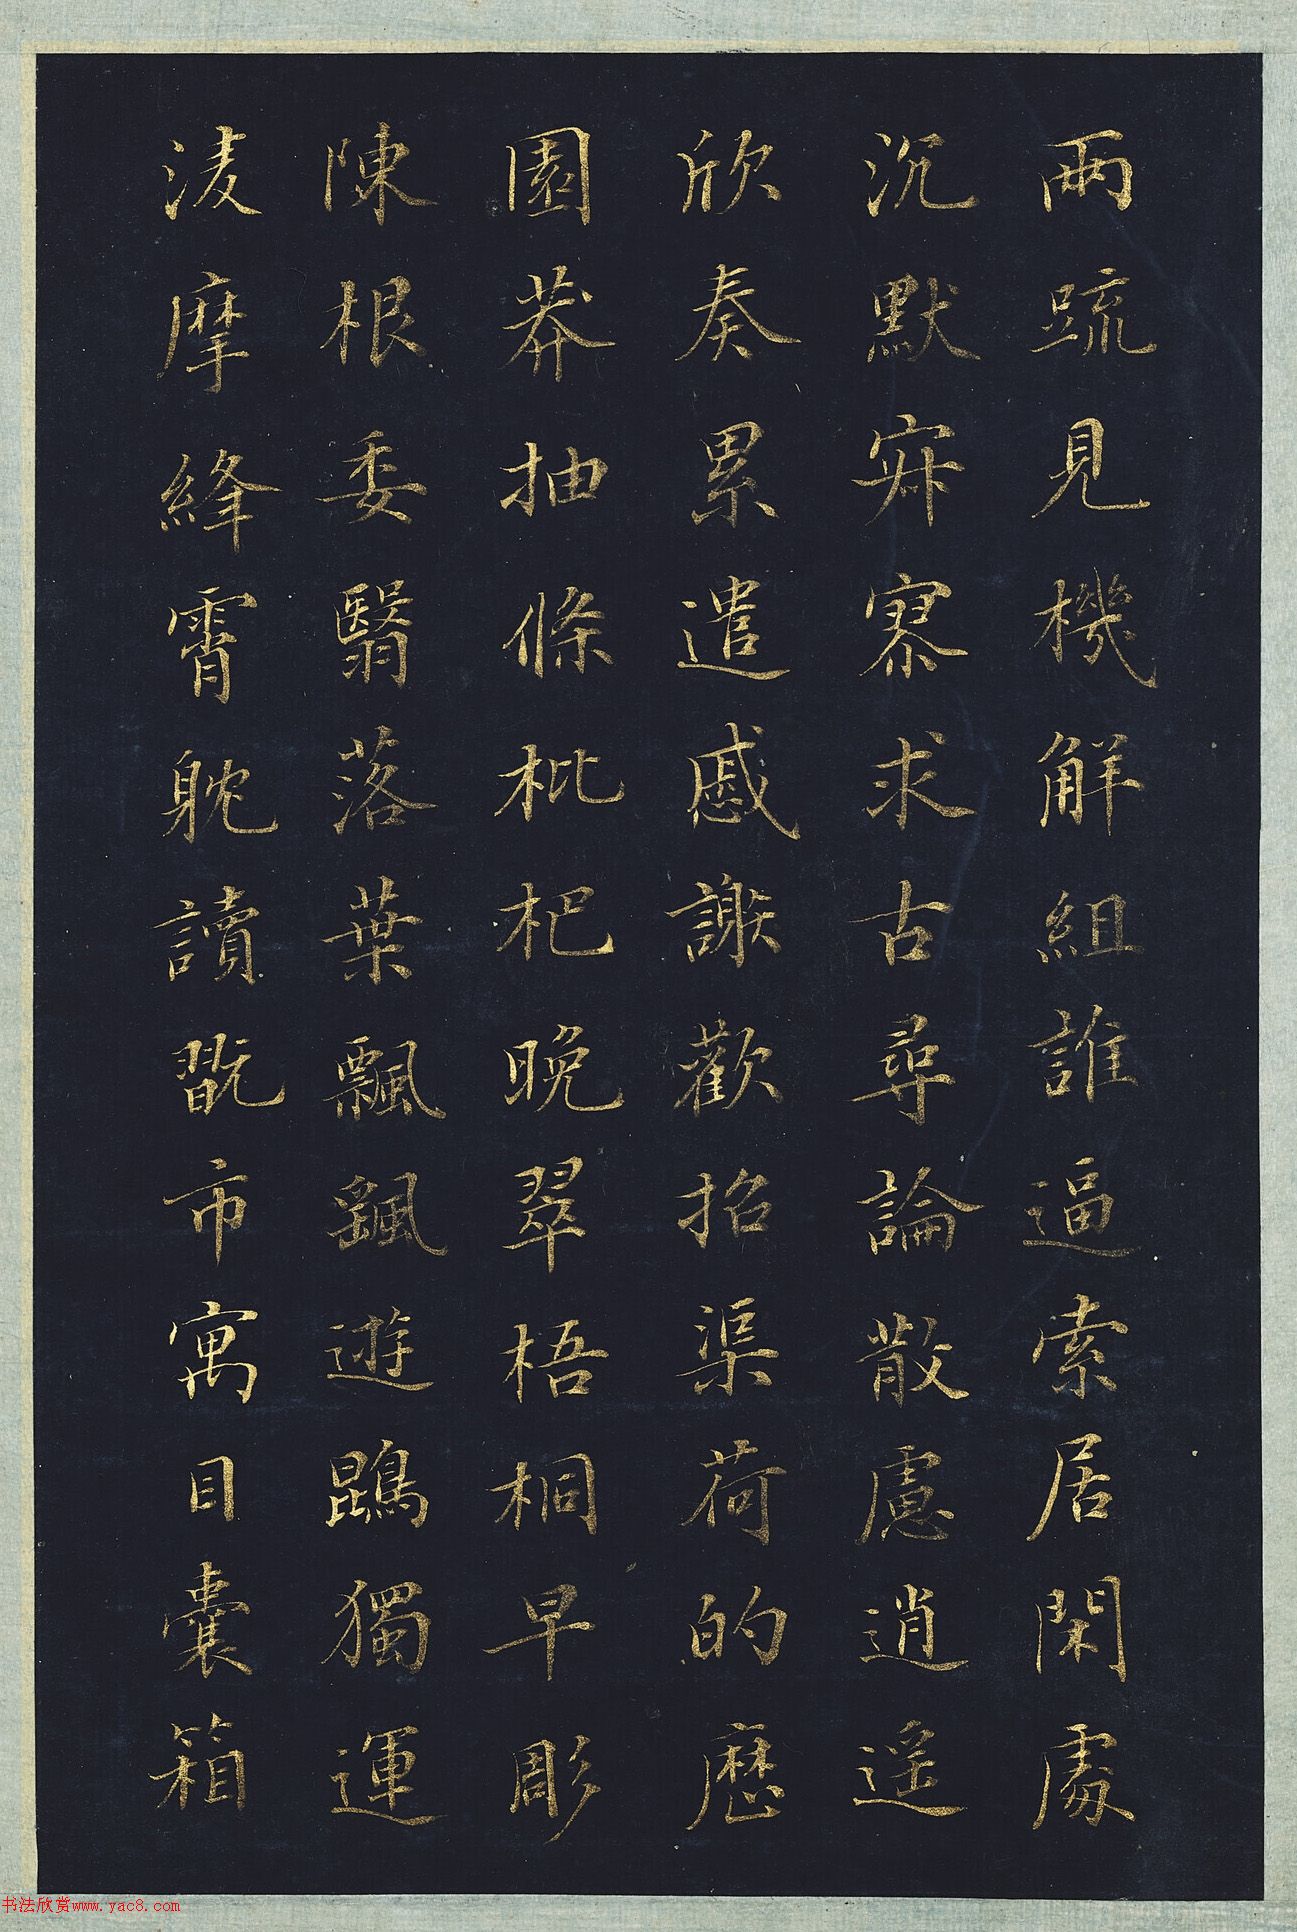 兩疏見機解組誰逼索居閑處
沉默寂寥求古尋論散慮逍遙
欣奏累遣慼謝歡招渠荷的歷
園莽抽條枇杷晚翠梧桐早彫
陳根委翳落葉飄颻遊鵾獨運
淩摩絳霄躭讀翫市寓目囊箱
书法欣赏www.yac8.com